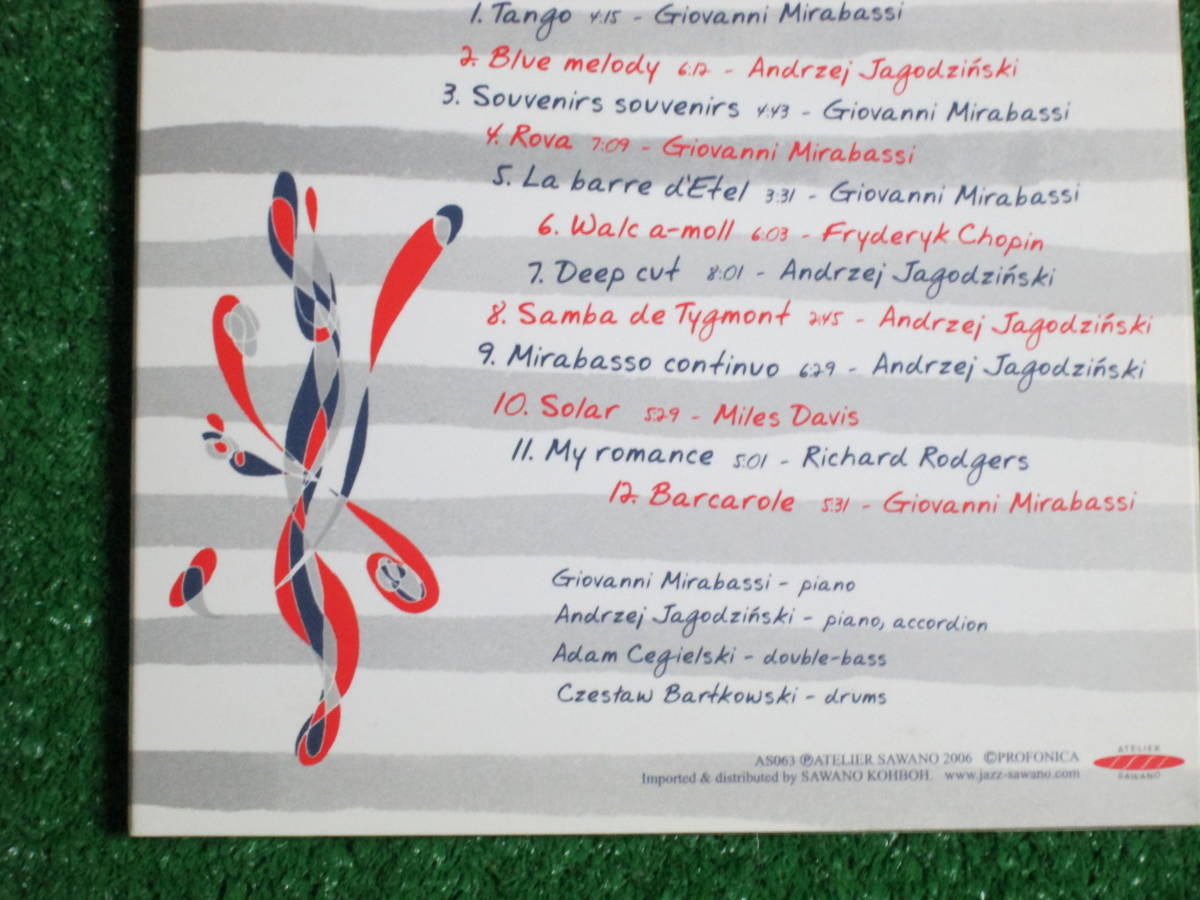 1. Tango 4:15 - Giovanni Mirabassi
2. Blue melody 6:12 - Andrzej Jagodziński
3. Souvenirs souvenirs 4:43 - Giovanni Mirabassi
4. Rova 7:09 - Giovanni Mirabassi
5. La barre d'Etel 3:31 - Giovanni Mirabassi
6. Walc a-moll 6:03 - Fryderyk Chopin
7. Deep cut 8:01 - Andrzej Jagodziński
8. Samba de Tygmont 2:45 - Andrzej Jagodziński
9. Mirabasso continuo 6:29 - Andrzej Jagodziński
10. Solar 5:29 - Miles Davis
11. My romance 5:01 - Richard Rodgers
12. Barcarole 5:31 - Giovanni Mirabassi
Giovanni Mirabassi - piano
Andrzej Jagodziński - piano, accordion
Adam Cegielski - double-bass
Czesław Bartkowski - drums
AS063 ℗ATELIER SAWANO 2006 ©PROFONICA
Imported & distributed by SAWANO KOHBOH. www.jazz-sawano.com
ATELIER
SAWANO